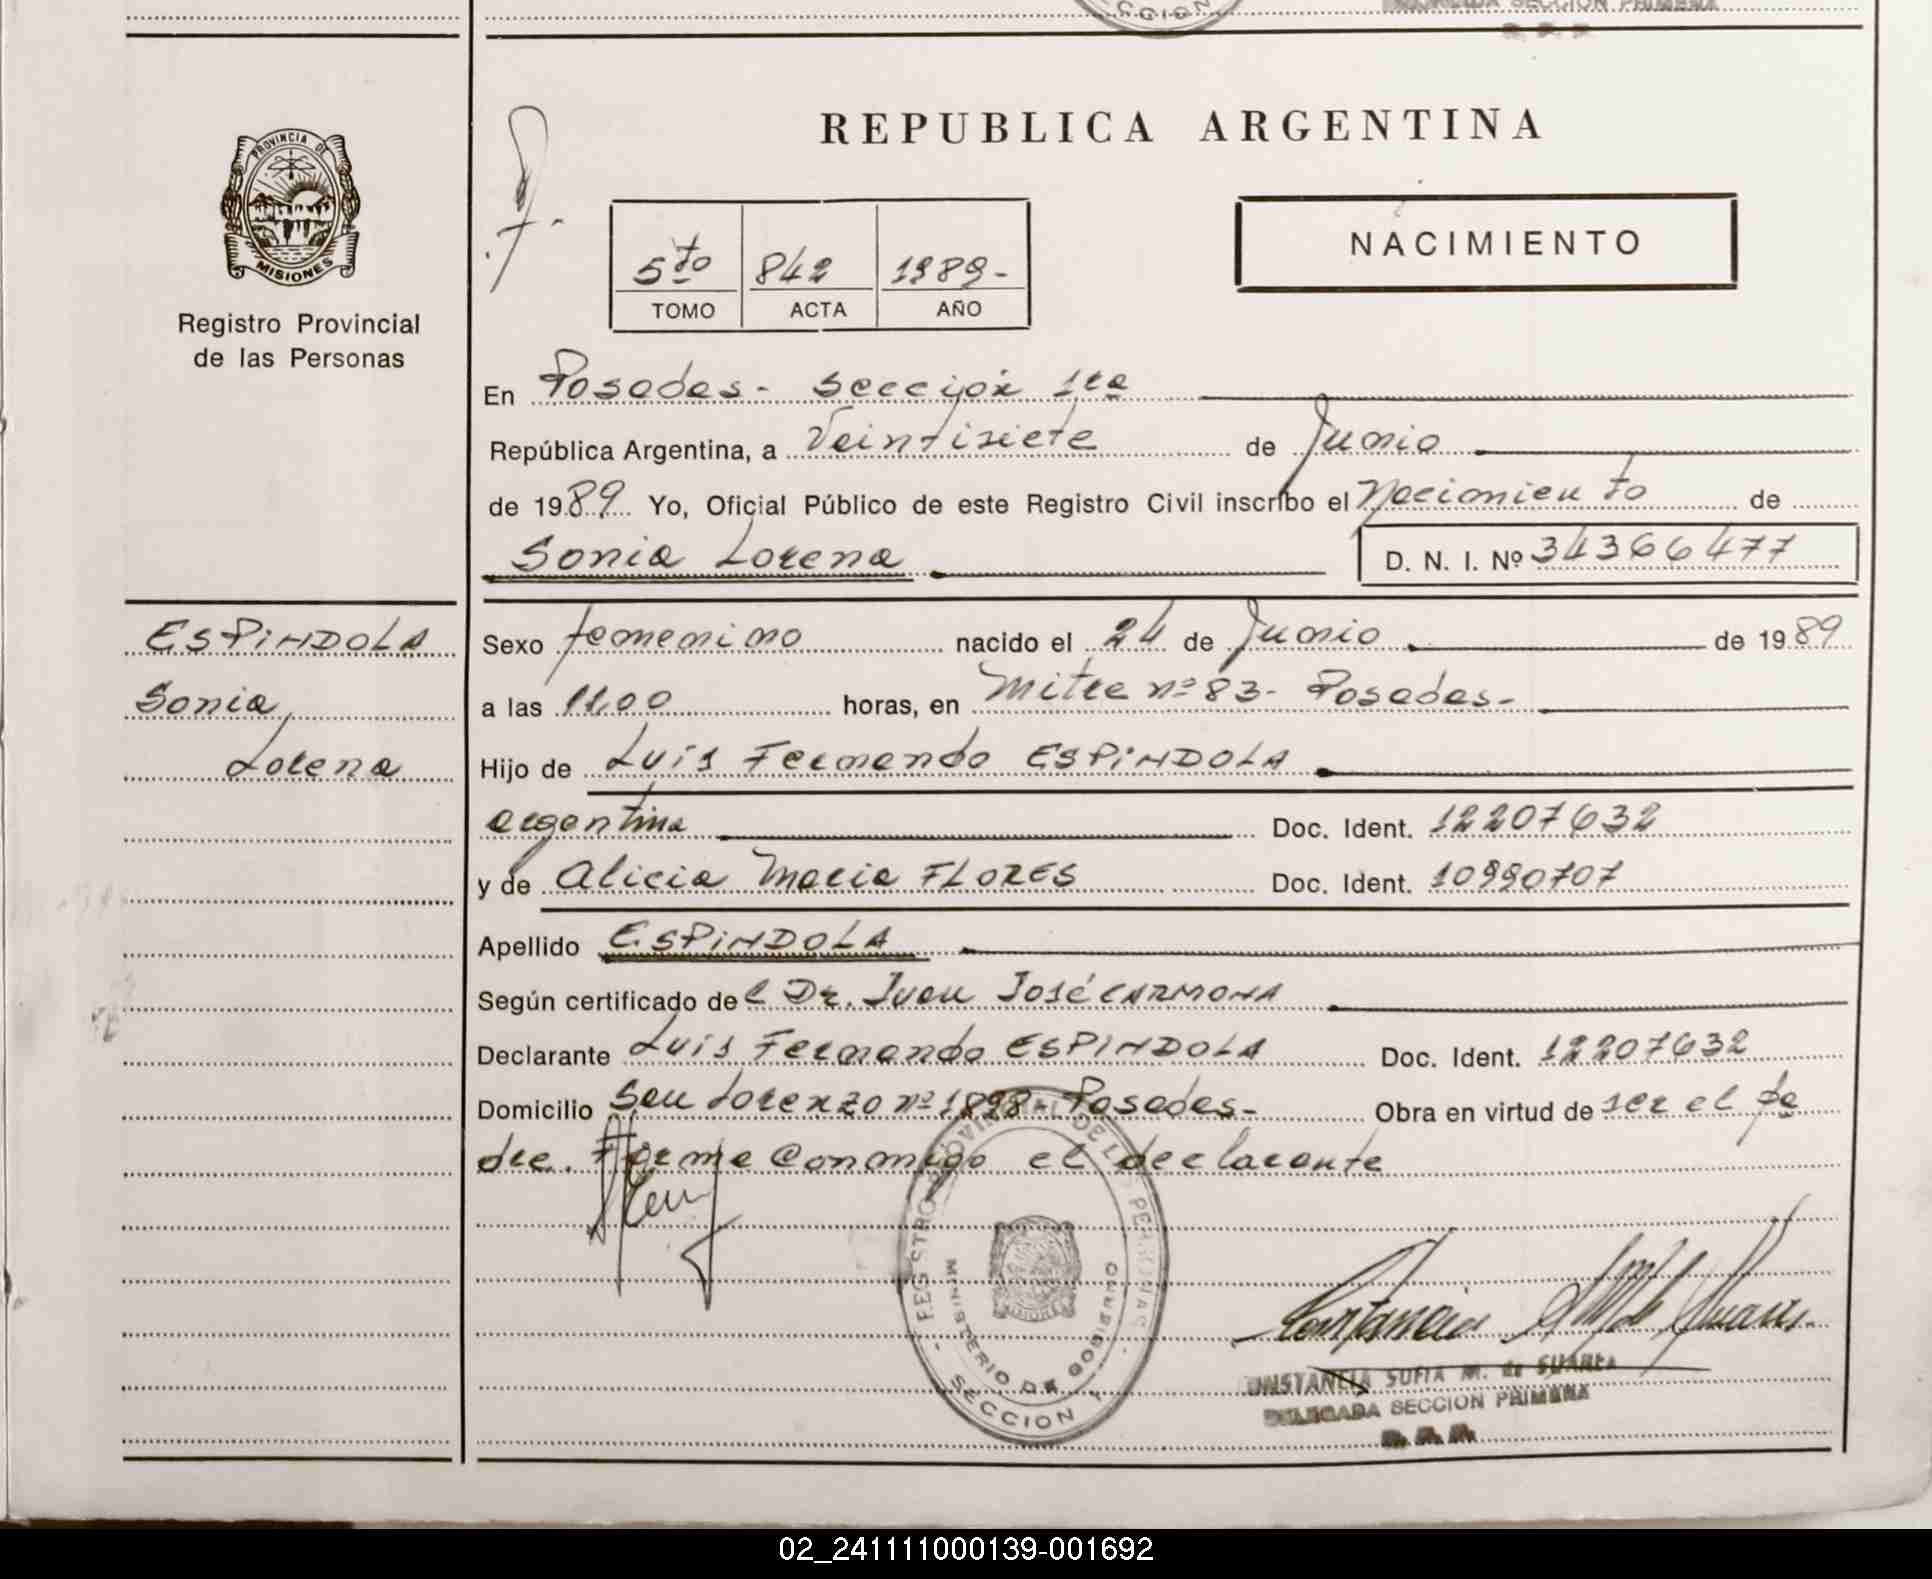 SECCION
DELEGADA SECCION PRIMERA
PROVINCIA DE
MISIONES
Registro Provincial
de las Personas
REPUBLICA ARGENTINA
5to 842 1989-
TOMO ACTA AÑO
NACIMIENTO
En Posadas - Sección 1ra
República Argentina, a Veintisiete de Junio
de 1989. Yo, Oficial Público de este Registro Civil inscribo el Nacimiento de
Sonia Lorena D. N. I. Nº 34366477
ESPINDOLA
Sonia
Lorena
Sexo femenino nacido el 24 de Junio de 1989
a las 11,00 horas, en Mitre nº 83- Posadas-
Hijo de Luis Fernando ESPINDOLA
argentina Doc. Ident. 12207632
y de Alicia Maria FLORES Doc. Ident. 10990707
Apellido ESPINDOLA
Según certificado del Dr. Juan José CARMONA
Declarante Luis Fernando ESPINDOLA Doc. Ident. 12207632
Domicilio San Lorenzo nº 1898- Posadas- Obra en virtud de ser el pa
dre. Firma Conmigo el declarante
REGISTRO PROVINCIAL DE LAS PERSONAS
MINISTERIO DE GOBIERNO
MISIONES
SECCION 1
CONSTANCIA SOFIA M. de SUAREZ
DELEGADA SECCION PRIMERA
02_241111000139-001692